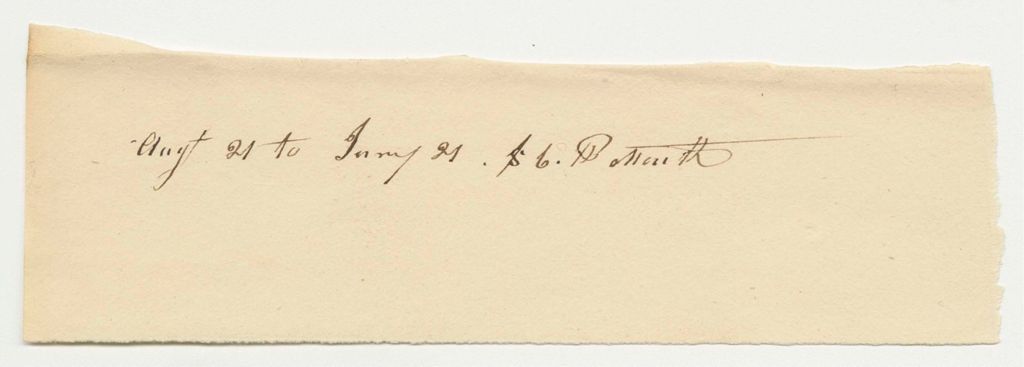 Augt 21 to Jany 21. $6. P Month